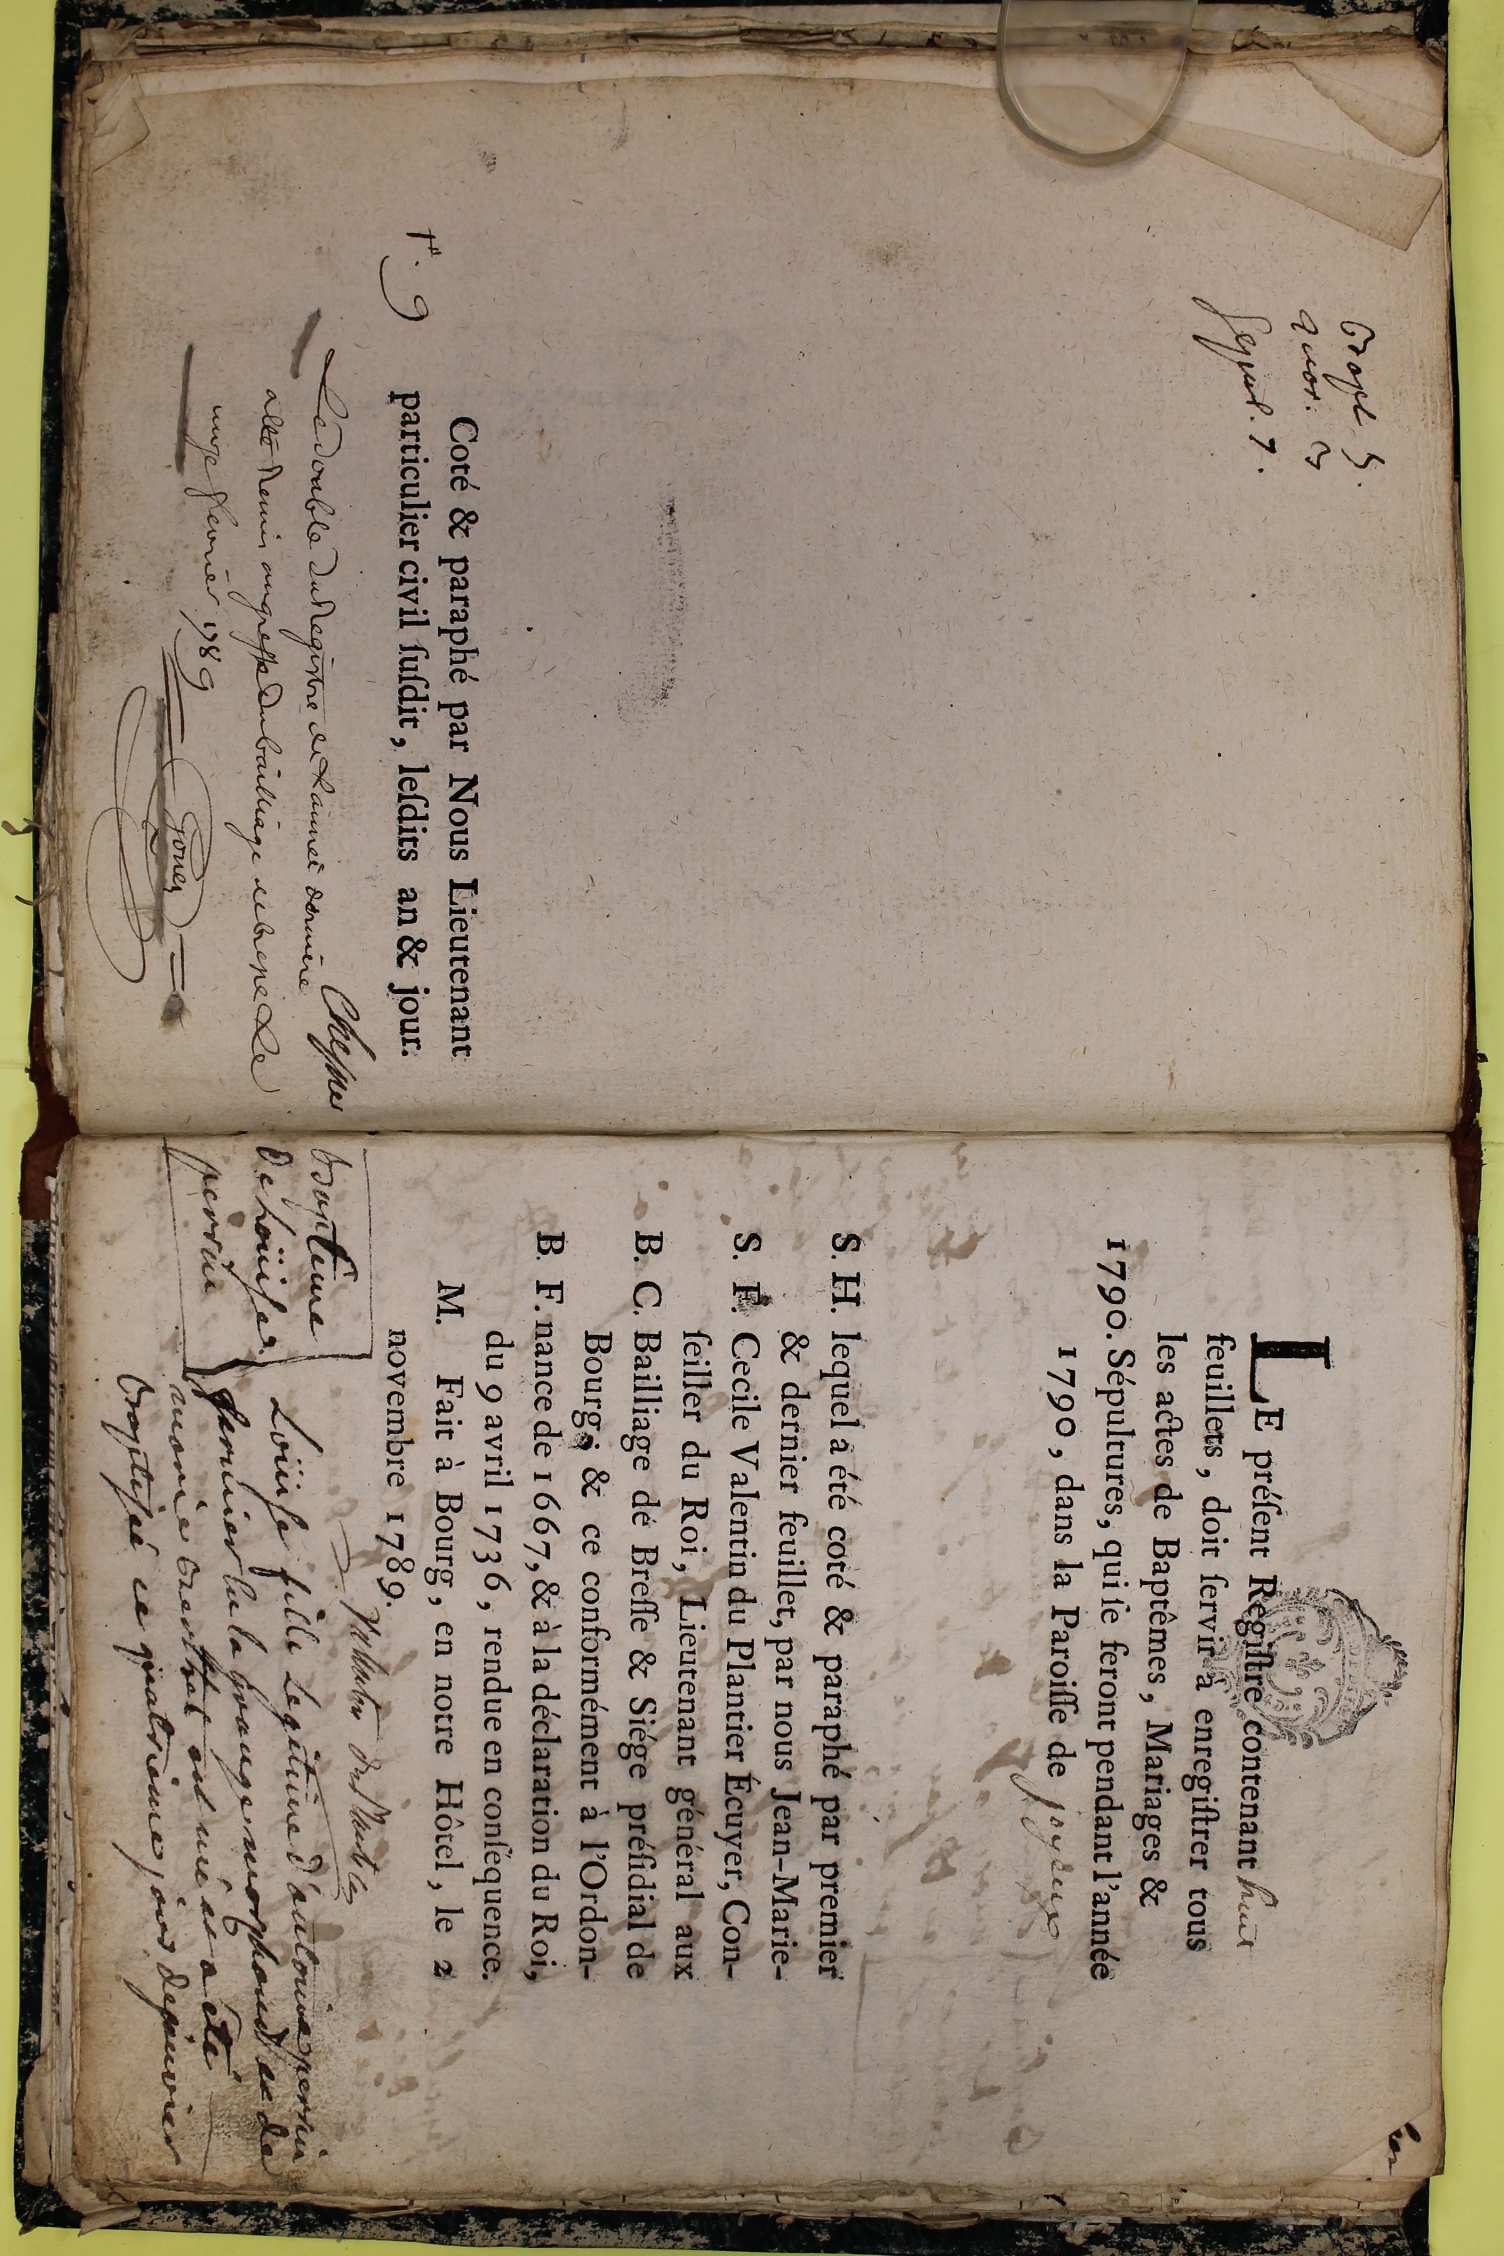 Bapt 5.
mor. 3
Sepul. 7.
Coté & paraphé par Nous Lieutenant
particulier civil ſuſdit, leſdits an & jour.
Le double du Registre de L'année derniere
remis au greffe du bailliage de bresse Le
fevrier 1789
Le
LE préſent Regiſtre contenant huit
feuillets, doit ſervir à enregiſtrer tous
les actes de Baptêmes, Mariages &
1790. Sépultures, qui ſe feront pendant l'année
1790, dans la Paroiſſe de joyeux
S. H. lequel a été coté & paraphé par premier
& dernier feuillet, par nous Jean-Marie-
S. F. Cecile Valentin du Plantier Écuyer, Con-
ſeiller du Roi, Lieutenant général aux
B. C. Bailliage de Breſſe & Siége préſidial de
Bourg; & ce conformément à l'Ordon-
B. F. nance de 1667, & à la déclaration du Roi,
du 9 avril 1736, rendue en conſéquence.
M. Fait à Bourg, en notre Hôtel, le 2
novembre 1789.
Bapteme
de Loüise
perrin
Loüise fille Legitime d'antoine perrin
fermier de la grange et de
marie est née et a été
Baptisée ce quatrieme jour de janvier